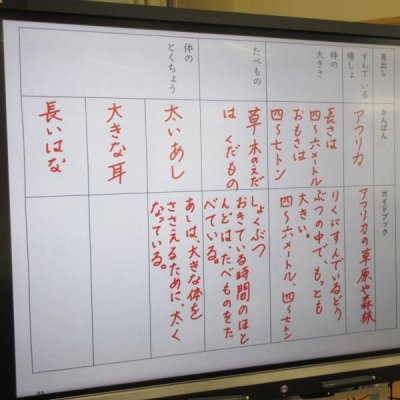 見出し
かんばん
ガイドブック
すんでいる
場しょ
アフリカ
アフリカの草原や森林
体の
大きさ
長さは
四〜六メートル
おもさは
四〜七トン
りくにすんでいるどう
ぶつの中で、もっとも
大きい。
四〜六メートル、四〜七トン
たべもの
草 木のえだ
は くだもの
しょくぶつ
おきている時間のほと
んどは、たべものをた
べている。
体の
とくちょう
太いあし
あしは、大きな体を
ささえるために、太く
なっている。
大きな耳
長いはな